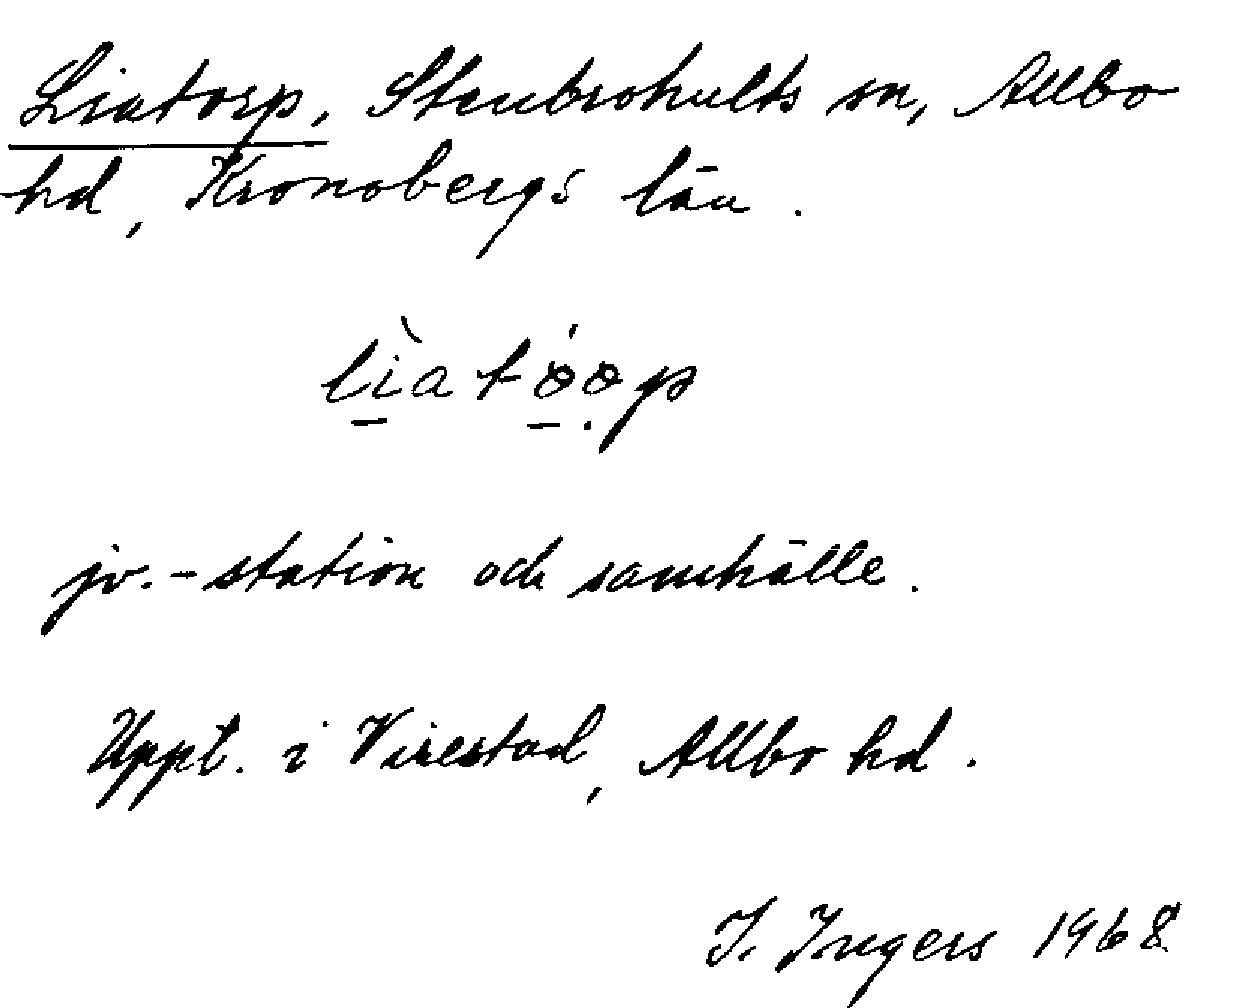 Liatorp, Stenbrohults sn, Allbo
hd, Kronobergs län.
jv.-station och samhälle.
Uppt. i Virestad, Allbo hd.
I. Ingers 1968